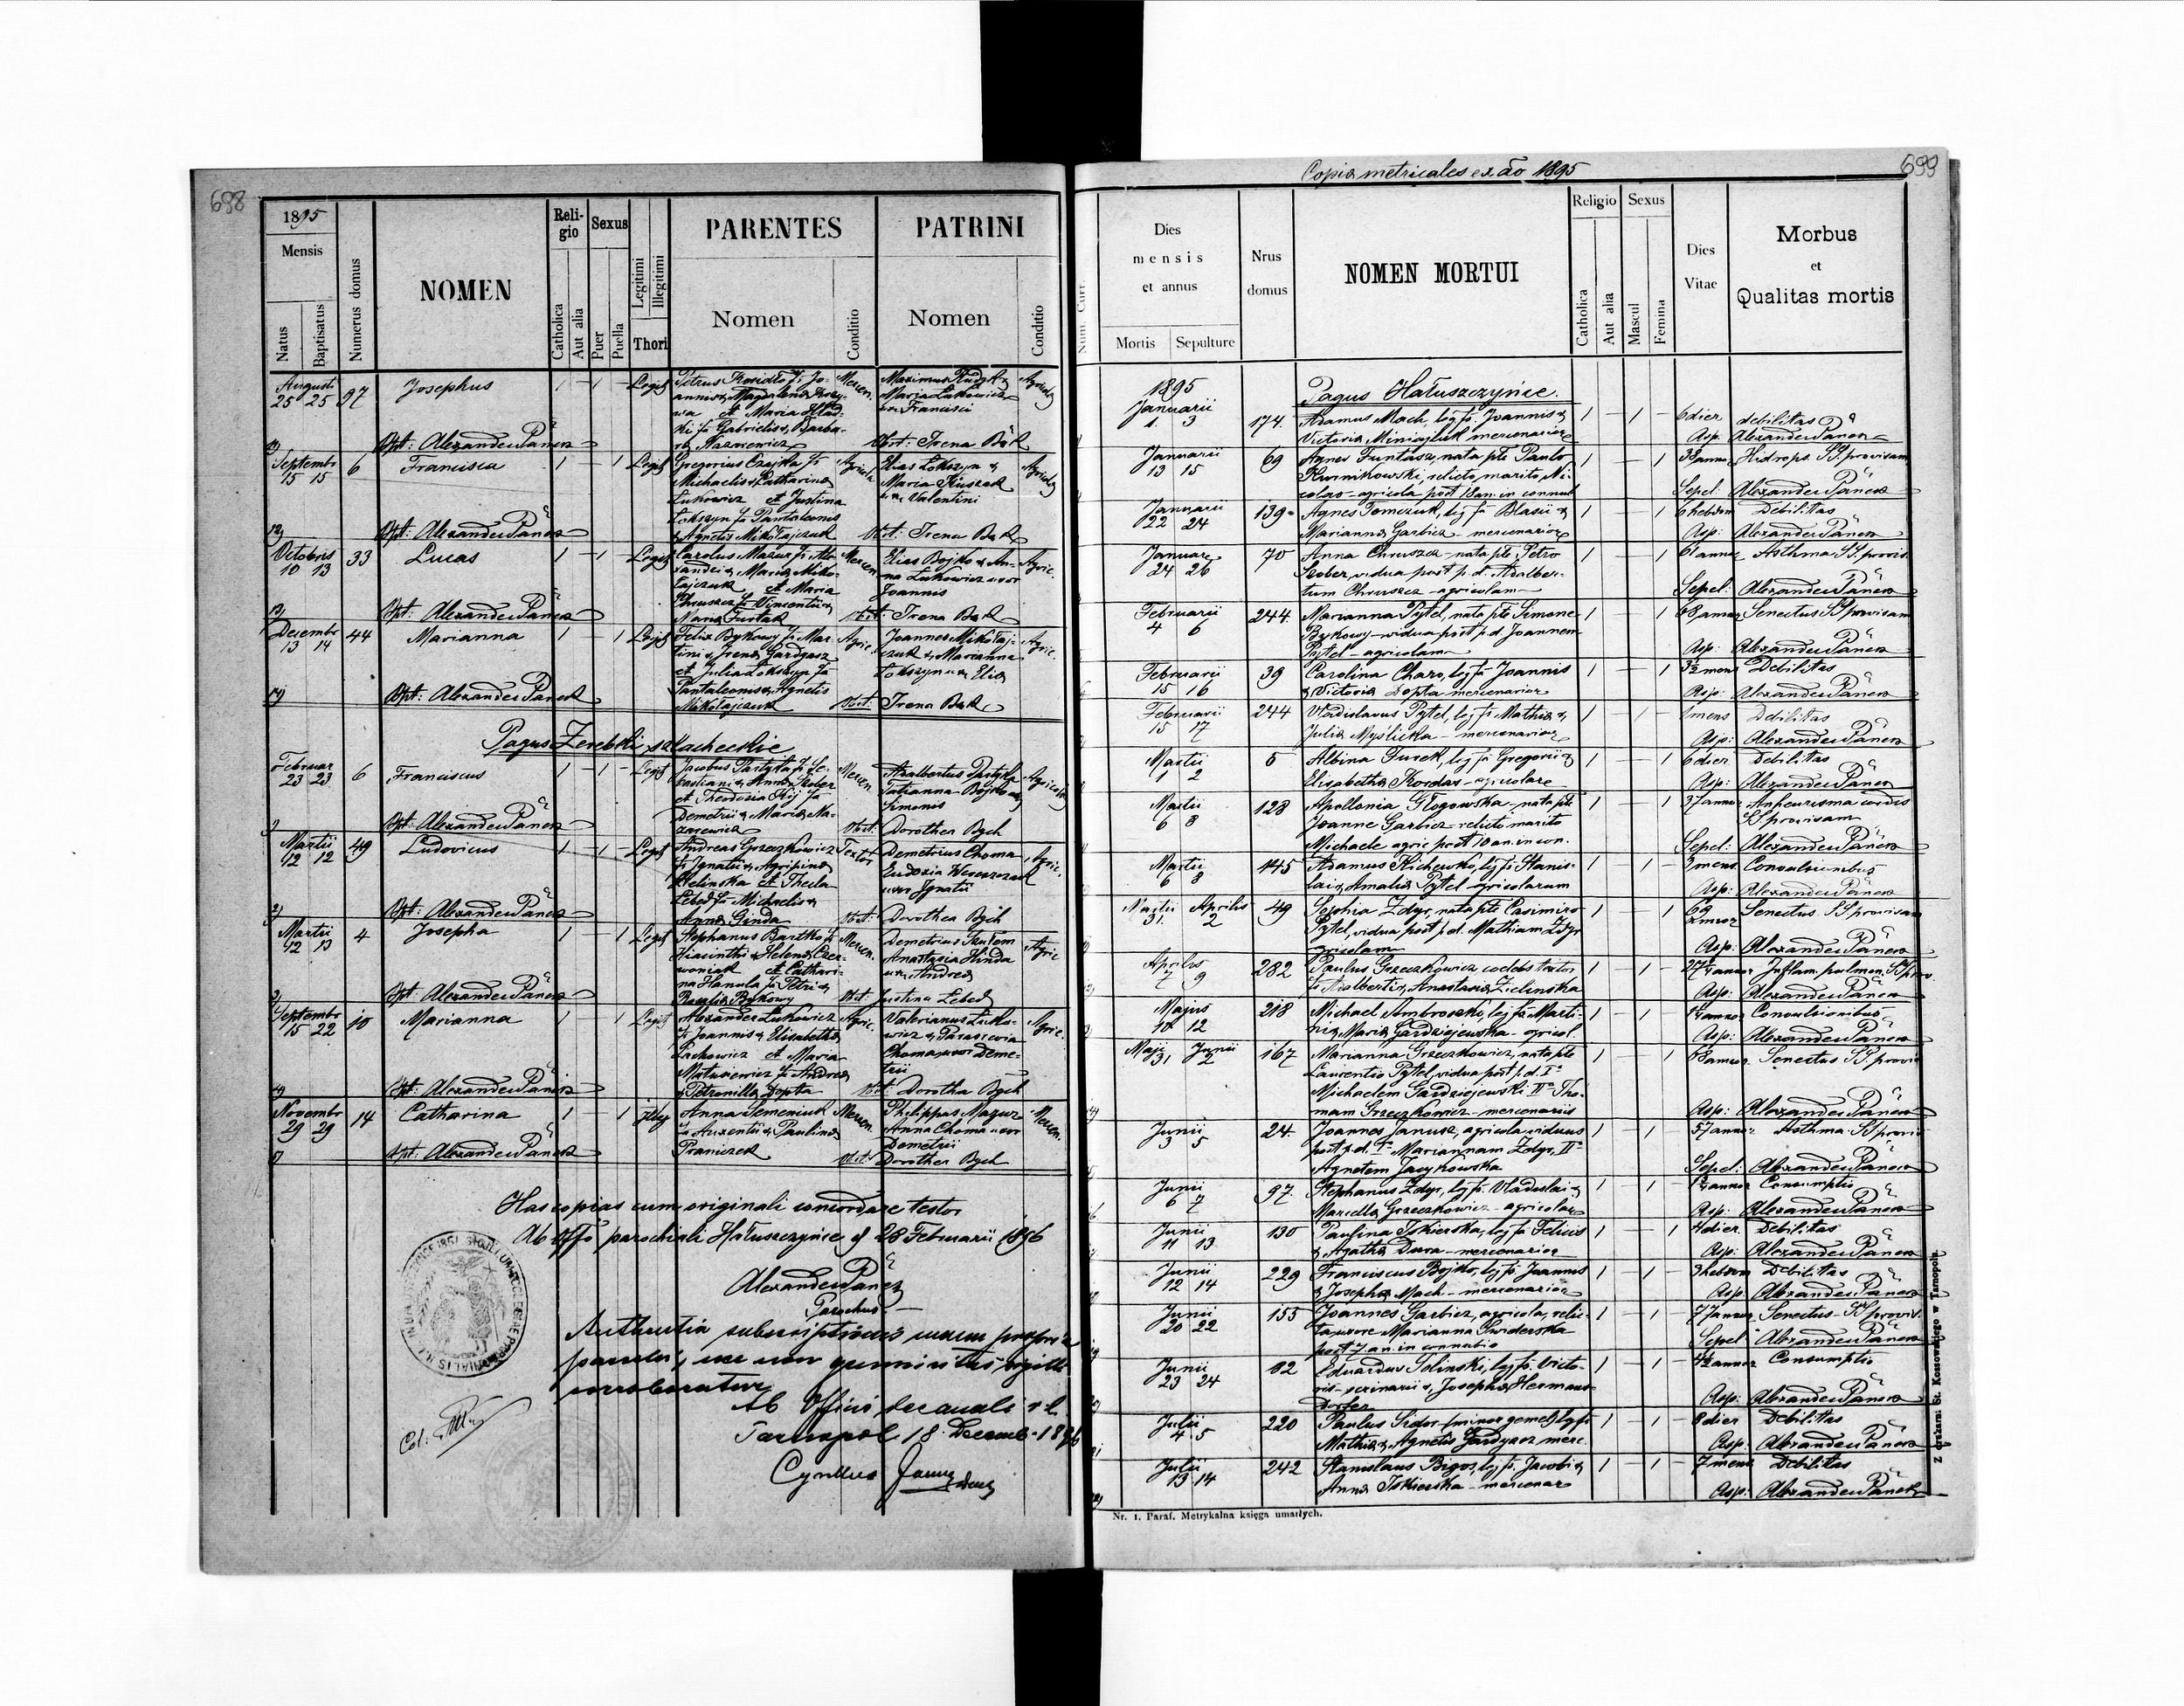 698
1895
Mensis
Natus
Baptisatus
Numerus domus
NOMEN
Reli-
gio
Catholica
Aut alia
Sexus
Puer
Puella
Legitimi
Illegitimi
Thori
PARENTES
Nomen
Conditio
PATRINI
Nomen
Conditio
Augusti
25 25
97
Josephus
Legit
Petrus
annis & Magdalena
et Maria
ki fa Gabrielis & Barba-
Mercen.
Maximus
Maria Łukowicz
Francisci
Agricolae
Bpt: Alexander Pänek
Obst: Irena Bąk
Septembr
15 15
6
Francisca
Legit
Gregorius Czajka fs
Michaelis & Catharina
Łukowicz et Justina
Łokszyn fa Pantaleonis
& Agnetis Mikołajczuk
Agricol
Elias Łokszyn &
Maria
Valentini
12)
Bpt: Alexander Pänek
Obst: Irena Bąk
Octobris
10 13
33
Lucas
Legit
Carolus Mazur fs Ale-
xandri & Maria Miko-
łajczuk et Maria
Chruszcz fa Vincentii &
Maria Furtak
Mercen.
Elias Bojko & An-
na Łukowicz uxor
Joannis
Agric.
13)
Bpt: Alexander Pänek
Obst: Irena Bąk
Decembr
13 14
44
Marianna
Legit
Felix Bykowy fs Mar-
tini & Irena Gardyasz
et Julia Łokszyn fa
Pantaleonis & Agnetis
Mikołajczuk
Agric.
Joannes Mikołaj-
czuk & Marianna
Łokszyn ux. Elia
Agric.
14)
Bpt: Alexander Pänek
Obst: Irena Bąk
Pagus Zerebki szlacheckie
Februar
23 23
6
Franciscus
Legit
Jacobus Partyka fs Se-
bastiani & Anna Szober
et Theodosia Kij fa
Demetrii & Maria Na-
zarewicz
Mercen
Adalbertus Partyka
Tatianna Bojko ux
Simonis
Agricolae
1)
Bpt: Alexander Pänek
Obst: Dorothea Bych
Martii
12 12
49
Ludovicus
Legit
Andreas Grzeczkowicz
fs Ignatii & Agripina
Zielinska et Thecla
Łebed fa Michaelis &
Anna Ginda
Textor
Demetrius Choma
Eudoxia
uxor Ignatii
Agric.
2)
Bpt: Alexander Pänek
Obst: Dorothea Bych
Martii
12 13
4
Josepha
Legit
Stephanus Bartko fs
Hiacinthi & Helena Czer-
woniak et Cathari-
na Hanula fa Petri &
Rosalia Bykowy
Mercen.
Demetrius
Anastasia Hinda
ux. Andrea
Agric
3)
Bpt: Alexander Pänek
Obst Justina Łebed
Septembr
15 22
10
Marianna
Legit
Alexander Łukowicz
fs Joannis & Elisabetha
Łackowicz et Maria
Matusiewicz fa Andrea
& Petronilla Dopta
Agric.
Valerianus Łuko-
wicz & Parascevia
Choma uxor Deme-
trii
Agric.
4)
Bpt: Alexander Pänek
Obst: Dorothea Bych
Novembr
29 29
14
Catharina
Illeg
Anna Semeniuk
fa Auxentii & Paulina
Franiczek
Mercen.
Philippus Mazur
Anna Choma uxor
Demetrii
Mercen.
5)
Bpt: Alexander Pänek
Obst: Dorothea Bych
Has copias cum originali concordare testor
Ab offo parochiali Hałuszczyńce d 28 Februarii 1896
Alexander Pänek
Parochus
Authentia subscriptionis
corroboratur
Ab Officio decanali r. l.
Tarnopol 18 Decemb. 1896
Cyrillus
Col:
699
Copia metricales ex ao 1895
Num. Curr.
Dies
mensis
et annus
Mortis
Sepulture
Nrus
domus
NOMEN MORTUI
Religio
Catholica
Aut alia
Sexus
Mascul
Femina
Dies
Vitae
Morbus
et
Qualitas mortis
1895
Pagus Hałuszczyńce.
Januarii
1. 3
174.
Adamus Mach, leg fs Joannis &
Victoria Miniajluk mercenarior
6 dier
debilitas
Asp: Alexander Pänek
Januarii
13 15
69
Agnes Juntasz, nata pte Paulo
Kurnikowski, relicto marito Ni-
colao - agricola post 18 an. in connub
38 annor
Hidrops. SS. provisam
Sepel: Alexander Pänek
Januarii
22 24
139
Agnes Tomczuk, leg fa Blasii &
Marianna Garbicz - mercenarior
6 hebdom
Debilitas
Asp: Alexander Pänek
Januari
24 26
70
Anna Chruszcz - nata pte Petro
Szober, vidua post p. d. Adalber-
tum Chruszcz - agricolam
61 annor
Asthma SS. provis.
Sepel: Alexander Pänek
Februarii
4 6
244
Marianna Pytel, nata pte Simone
Bykowy - vidua post p. d. Joannem
Pytel - agricolam
68 annor
Senectus SS provisam
Asp: Alexander Pänek
Februarii
15 16
39
Carolina Charo, leg fa Joannis
& Victoria Dopta mercenarior
3½ mens
Debilitas
Asp: Alexander Pänek
Februarii
15 17
244
Vladislavus Pytel, leg fs Mathia &
Julia Myślicka - mercenarior
1 mens
Debilitas
Asp: Alexander Pänek
Martii
1 2
5
Albina Turek, leg fa Gregorii &
Elisabetha Kordas - agricolar
6 dier
Debilitas
Asp: Alexander Pänek
Martii
6 8
128
Apollonia Głogowska - nata pte
Joanne Garbicz - relicto marito
Michaele agric post 10 an. in con.
37 annor
Anheurisma cordis
SS. provisam
Sepel: Alexander Pänek
Martii
6 8
145
Adamus Kichewko, leg fs Stanis-
lai & Amalia Pytel agricolarum
9 mens
Convulsionibus
Asp: Alexander Pänek
Martii Aprilis
31. 2
49
Sophia Zdyr, nata pte Casimiro
Pytel, vidua post p. d. Mathiam Zdyr
agricolam
69
annor
Senectus SS provisam
Asp: Alexander Pänek
Aprilis
7 9
282
Paulus Grzeczkowicz coelebs textor
fs Adalberti & Anastasia Zielinska
27 annor
Inflam. pulmon. SS prov
Asp: Alexander Pänek
Majus
10 12
218
Michael Ambroszko, leg fs Marti-
ni & Maria Gardziejewska - agricol.
Convulsionibus
Asp: Alexander Pänek
Maji Junii
31 2
167
Marianna Grzeczkowicz, nata pte
Laurentio Pytel, vidua post p. d. I°
Michaelem Gardziejewski II° Tho-
mam Grzeczkowicz - mercenariis
68 annor
Senectus SS provis
Asp: Alexander Pänek
Junii
3 5
24.
Joannes Janusz, agricola viduus
post p. d. I° Mariannam Zdyr, II°
Agnetem Jasykowska
57 annor
Asthma. SS provis
Sepel: Alexander Pänek
Junii
6 7
97.
Stephanus Zdyr, leg fs. Vladislai &
Marcella Grzeczkowicz - agricolar
Consumptio
Asp: Alexander Pänek
Junii
11 13
130
Paulina Iskierska, leg fa Felicis
& Agatha Dura - mercenarior
4 dier
Debilitas
Asp: Alexander Pänek
Junii
12 14
229
Franciscus Bojko, leg fs. Joannis
& Josepha Mach - mercenarior
3 hebdom
Debilitas
Asp: Alexander Pänek
Junii
20 22
155
Joannes Garbicz, agricola, relic-
ta uxore Marianna Swiderska
post 7 an. in connubio
77 annor
Senectus - SS provis.
Sepel: Alexander Pänek
Junii
23 24
82
Eduardus Solinski, leg fs. Victo-
ris - & Josepha Hermans-
dorfer
Consumptio
Asp: Alexander Pänek
Julii
4 5
220
Paulus Sidor (minor gemel) leg fs
Mathia & Agnetis Gardyasz merc.
8 dier
Debilitas
Asp: Alexander Pänek
Julii
13 14
242
Stanislaus Bigos, leg fs. Jacobi &
Anna Iskierska - mercenar
7 mens
Debilitas
Asp: Alexander Pänek
Nr. 1. Paraf. Metrykalna księga umarłych.
Z drukarni St. Kossowskiego w Tarnopolu